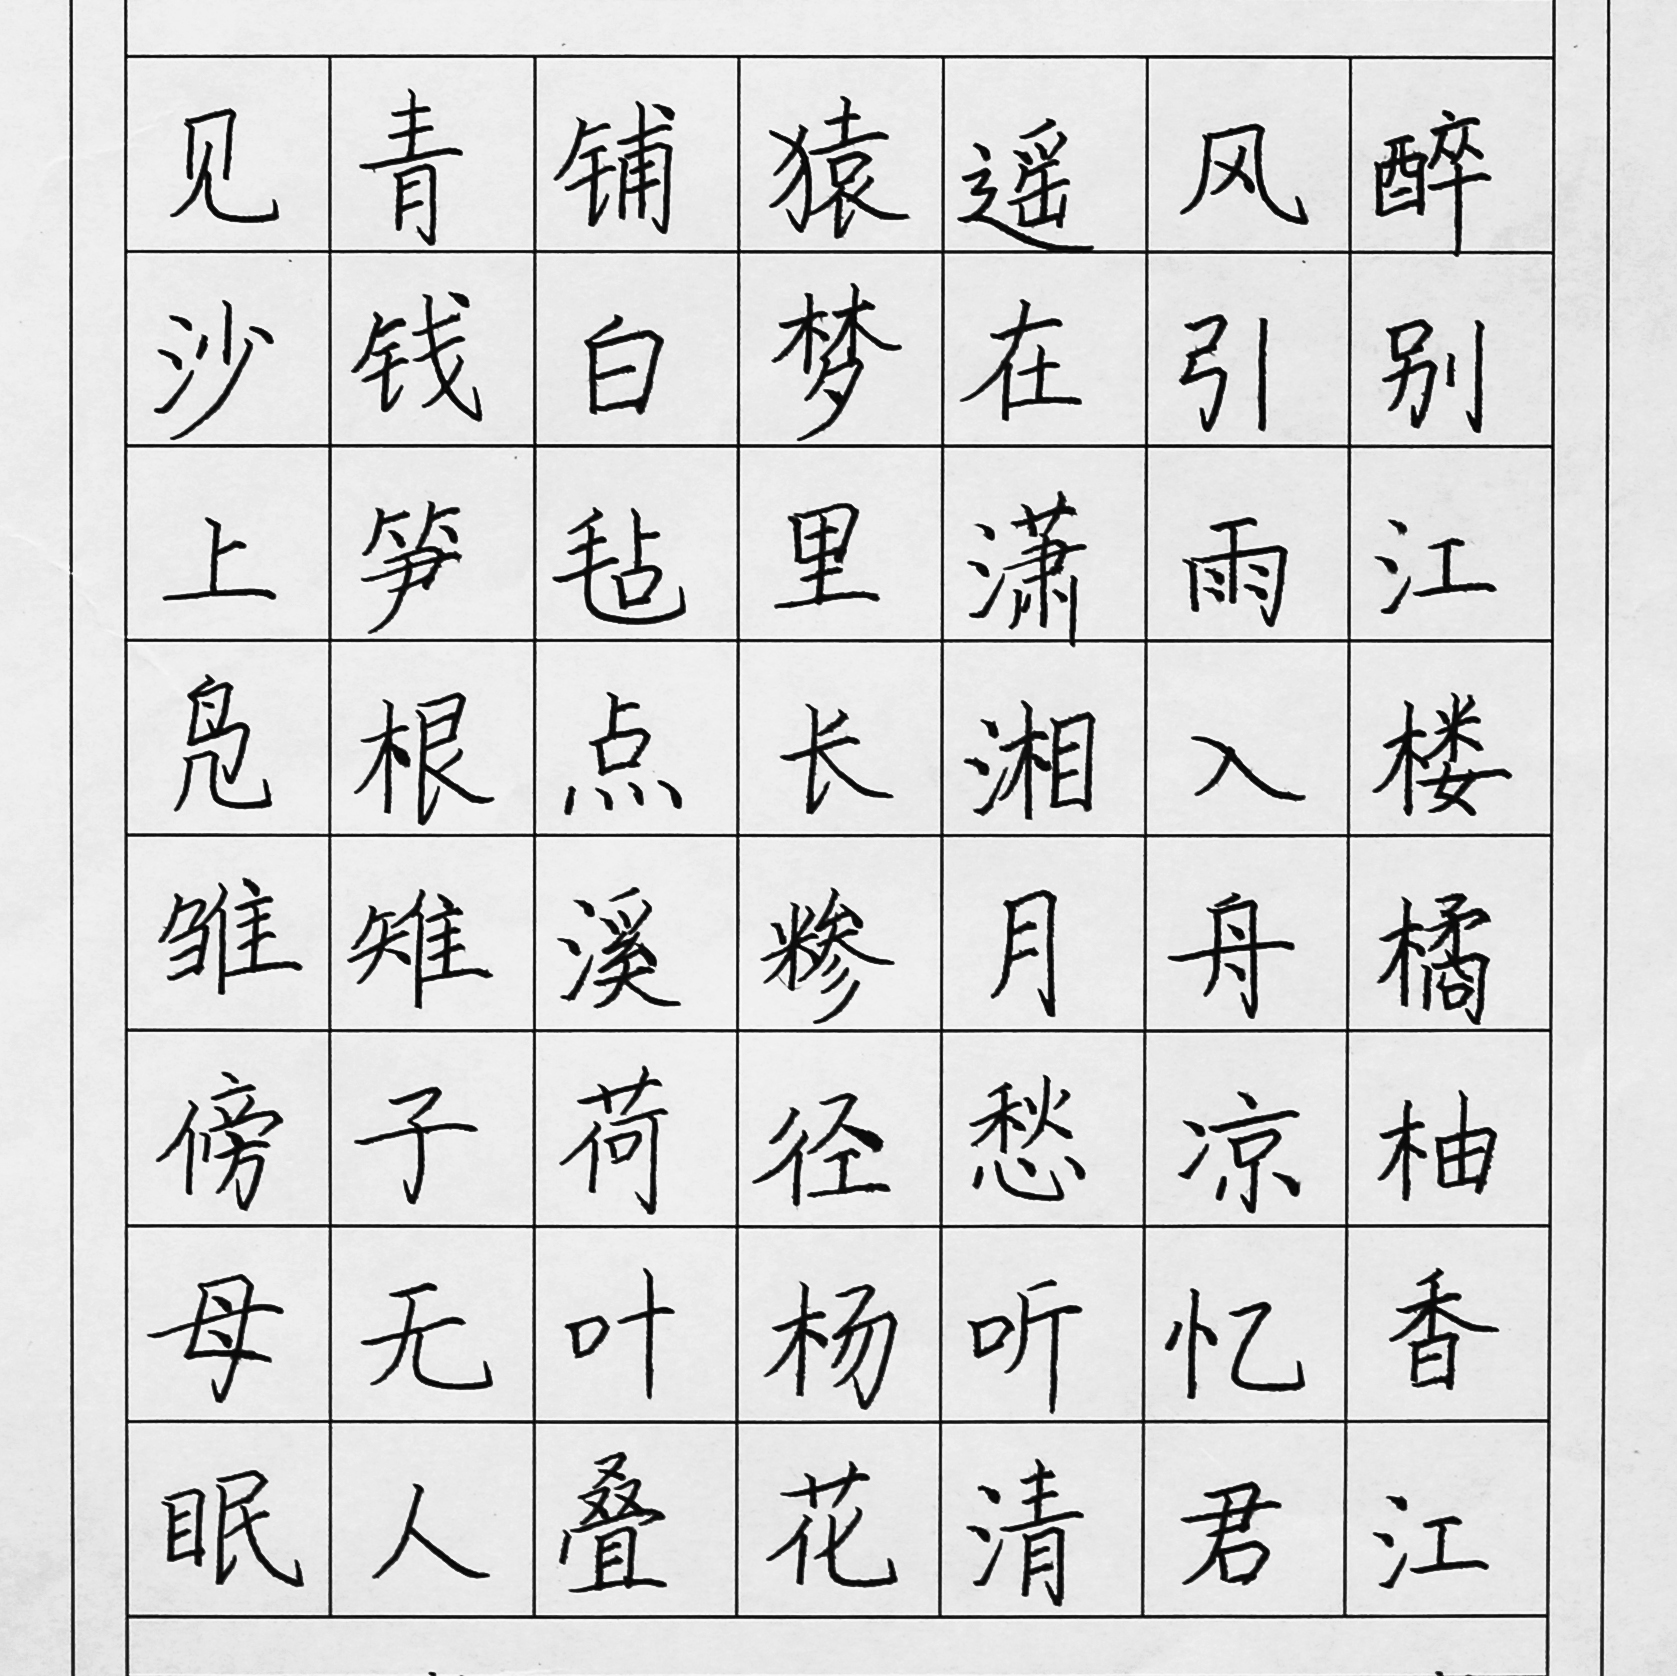 醉别江楼橘柚香江
风引雨入舟凉忆君
遥在潇湘月愁听清
猿梦里长糁径杨花
铺白毡点溪荷叶叠
青钱笋根雉子无人
见沙上凫雏傍母眠